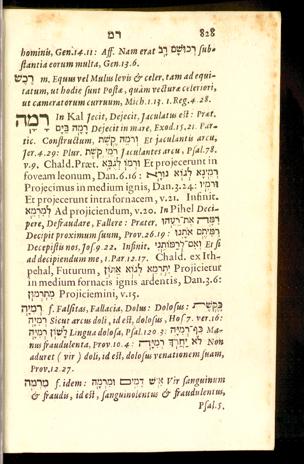 רמ 828
hominis, Gen.14.11: Aff. Nam erat רְכוּשָׁם רָב sub-
stantia eorum multa, Gen.13.6.
רֶכֶשׁ m. Equus vel Mulus levis & celer, tam ad equi-
tatum, ut hodie sunt Postæ, quàm vecturæ celeriori,
ut cameratorum curruum, Mich.1.13. 1.Reg.4.28.
רָמָה In Kal Jecit, Dejecit, Jaculatus est: Præt.
רָמָה בַיָּם Dejecit in mare, Exod.15.21. Par-
tic. Constructum, קֶשֶׁת Et jaculantis arcu,
Jer.4.29: Plur. רֹמֵי קֶשֶׁת Jaculantes arcu, Psal.78.
v.9. Chald. Præt. וּרְמוֹ לְגֻבָּא Et projecerunt in
foveam leonum, Dan.6.16: רְמֵינָא לְגוֹא נוּרָא
Projecimus in medium ignis, Dan.3.24: וּרְמִיו
Et projecerunt intra fornacem, v.21. Infinit.
לְמִרְמֵא Ad projiciendum, v.20. In Pihel Deci-
pere, Defraudare, Fallere: Præter. רִמָּה אֶת־רֵעֵהוּ
Decipit proximum suum, Prov.26.19: רִמִּיתֶם אֹתָנוּ
Decepistis nos, Jos.9 22. Infinit. וְאִם־לְרַמּוֹתַנִי Et si
ad decipiendum me, 1.Par.12.17. Chald. ex Ith-
pehal, Futurum, יִתְרְמֵא לְגוֹא אַתּוּן Projicietur
in medium fornacis ignis ardentis, Dan.3.6:
תִּתְרְמוֹן Projiciemini, v.15.
רְמִיָּה f. Falsitas, Fallacia, Dolus: Dolosus: קֶשֶׁת
רְמִיָּה Sicut arcus doli, id est, dolosus, Hos.7. ver.16:
לָשׁוֹן רְמִיָּה Lingua dolosa, Psal.120 3: כַף־רְמִיָּה Ma-
nus fraudulenta, Prov.10.4: לֹא יַחֲרֹךְ רְמִיָּה Non
aduret (vir) doli, id est, dolosus venationem suam,
Prov.12.27.
מִרְמָה f. idem: אִישׁ דָּמִים וּמִרְמָה Vir sanguinum
& fraudis, id est, sanguinolentus & fraudulentus,
Psal.5.